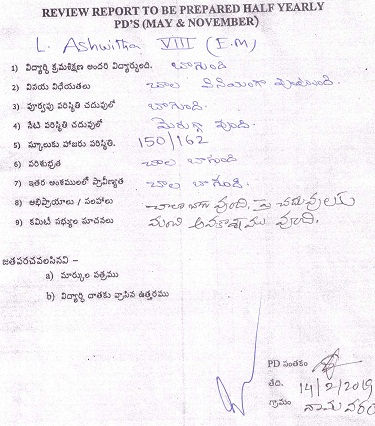 REVIEW REPORT TO BE PREPARED HALF YEARLY
PD'S (MAY & NOVEMBER)
L. Ashwitha VIII (E.M)
1) విద్యార్థి క్రమశిక్షణ అందరి విద్యార్థులది. బాగుంది
2) వినయ విధేయతలు చాల వినియంగా వుంటుంది.
3) పూర్వపు పరిస్థితి చదువులో బాగుంది.
4) నేటి పరిస్థితి చదువులో మెరుగ్గా వుంది.
5) స్కూలుకు హాజరు పరిస్థితి. 150/162
6) పరిశుభ్రత చాల బాగుంది
7) ఇతర అంశములలో ప్రావీణ్యత చాల బాగుంది.
8) అభిప్రాయాలు / సలహాలు చాలా బాగా వుంది. పై చదువులకు
9) కమిటీ సభ్యుల సూచనలు మంచి అవకాశము వుంది.
జతపరచవలసినవి –
a) మార్కుల పత్రము
b) విద్యార్థి దాతకు వ్రాసిన ఉత్తరము
PD సంతకం
తేది. 14/2/2019
గ్రామం రామవరం